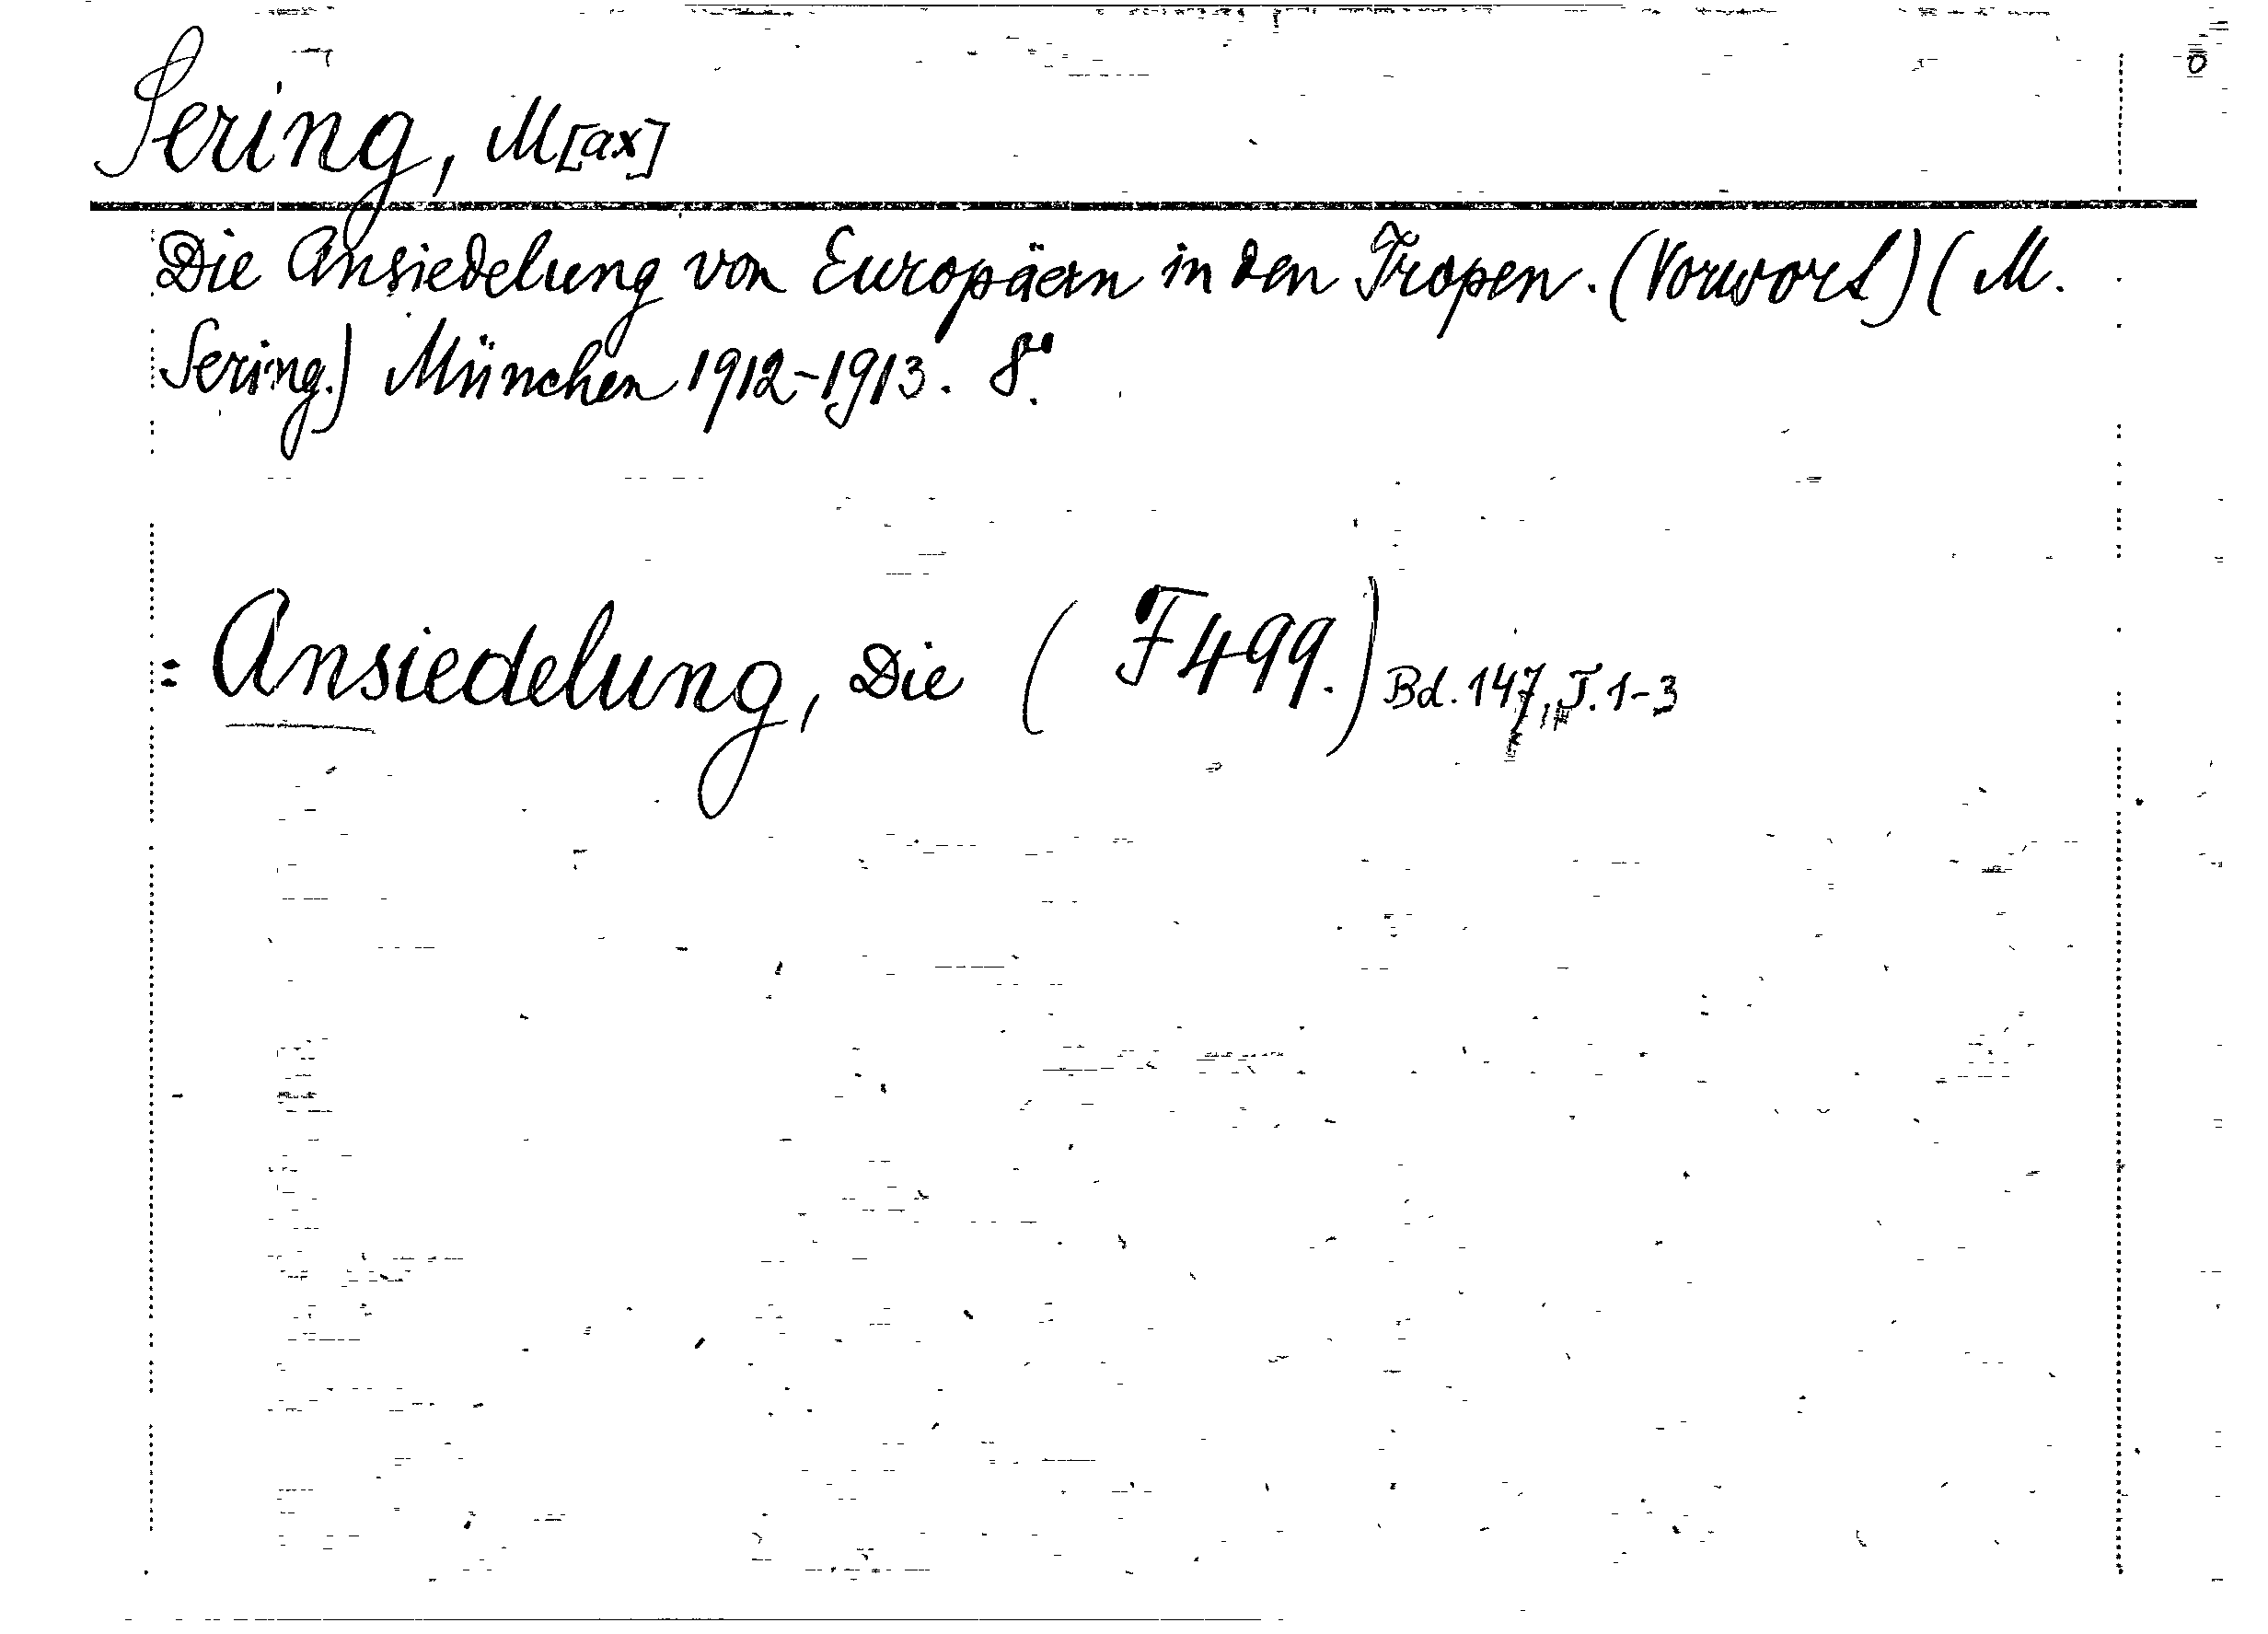 Sering, M[ax]
Die Ansiedelung von Europäern in den Tropen. (Vorwort) (M.
Sering.) München 1912-1913. 8°.
= Ansiedelung, Die ( F 499.) Bd. 147, T. 1-3